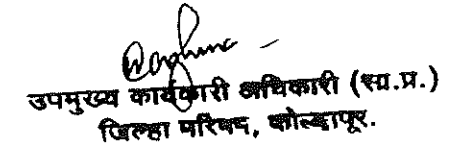 उपमुख्य कार्यकारी अधिकारी (सा.प्र.)
जिल्हा परिषद, कोल्हापूर.